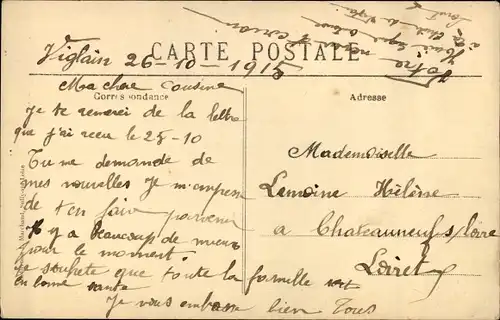 CARTE POSTALE
Viglain 26-10-1915
Correspondance
Adresse
Ma chere cousine
Je te remerci de la lettre
que j'ai recu le 25-10
Tu me demande de
mes nouvelles Je m'empesse
de t'en fair parvenir
Il y a beaucoup de mieux
pour le moment.
Je souhete que toute la famille soit
en bonne sante
Je vous embrasse bien Tous
Mademoiselle
Lemoine Hélène
a Chateauneuf s/Loire
Loiret
Votre